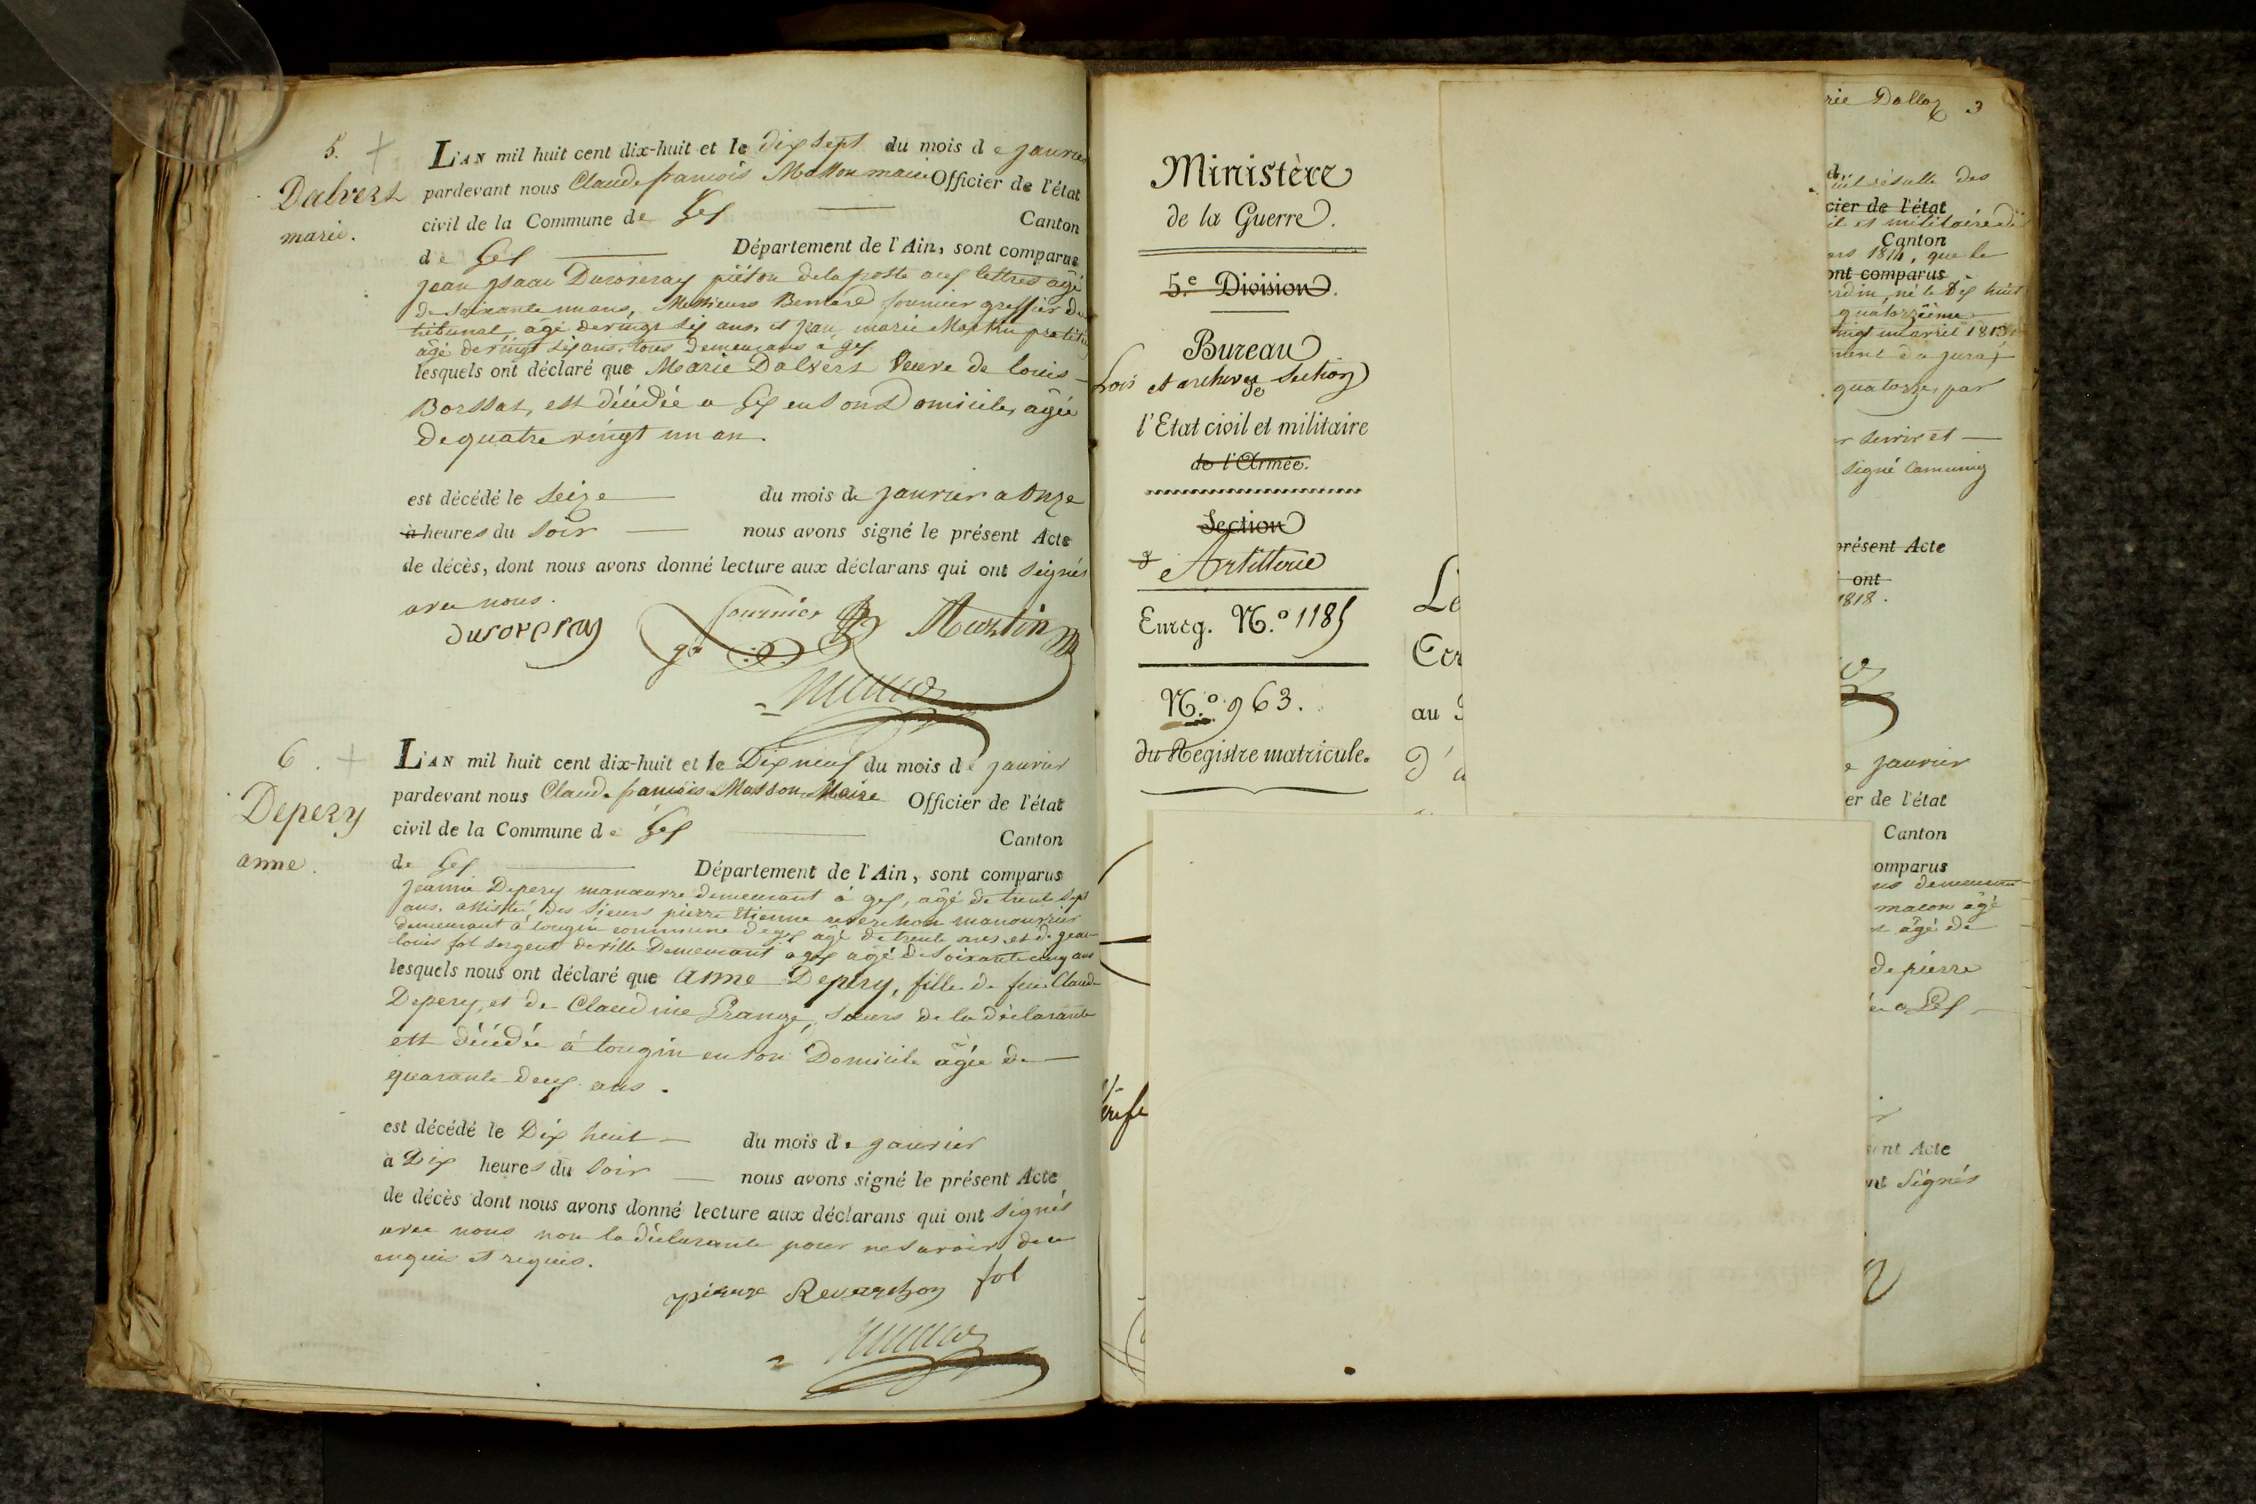 5. +
Dalvers
marie.
L'AN mil huit cent dix-huit et le dix sept du mois de janvier
pardevant nous Claude francois Masson maire Officier de l'état
civil de la Commune de Gex Canton
de Gex Département de l'Ain, sont comparus
jean isaac Duroveray piéton de la poste aux lettres agé
de soixante un ans, Messieurs Bernard fournier greffier du
tribunal, agé de vingt six ans, et jean marie
âgé de vingt six ans, tous demeurans à gex
lesquels ont déclaré que Marie Dalvers Veuve de louis
Borssat, est décédée a Gex en son Domicile, agée
de quatre vingt un an.
est décédé le Seize du mois de janvier a onze
à heures du soir nous avons signé le présent Acte
de décès, dont nous avons donné lecture aux déclarans qui ont signés
avec nous.
duroveray fournier Martin
gr
6. +
Depery
anne.
L'AN mil huit cent dix-huit et le Dix neuf du mois de janvier
pardevant nous Claude francois Masson Maire Officier de l'état
civil de la Commune de Gex Canton
de Gex Département de l'Ain, sont comparus
Jeanne Depery manœuvre demeurant à gex, âgé de trente sept
ans. assisté des Sieurs pierre Etienne reverchon manouvrier
demeurant à tougin commune de gex âgé de trente ans, et de jean
louis fol sergent de ville Demeurant a gex âgé de soixante cinq ans
lesquels nous ont déclaré que anne Depery, fille de feu Claude
Depery, et de Claudine Grange, sœurs de la déclarante
est décédée à tougin en son Domicile âgée de
quarante deux ans.
est décédé le Dix huit du mois de janvier
à Dix heures du soir nous avons signé le présent Acte
de décès dont nous avons donné lecture aux déclarans qui ont signés
avec nous non la déclarante pour ne savoir de ce
enquis et requis.
pierre Reverchon fol
Ministère
de la Guerre.
5.e Division.
Bureau
Lois et archives Section
de
l'Etat civil et militaire
de l'Armée.
Section
d'Artillerie
Enreg. N.o 1185
N.o 963.
du Registre matricule.
Le
Cer
au
d'
rie Dalloz 3
résulte des
cier de l'état
et militaire
Canton
1814, que le
ont comparus
né le dix huit
quatorzième
vingt un avril 1813
du jura
quatorze, par
servir et
signé
présent Acte
ont
1818.
janvier
er de l'état
Canton
omparus
macon agé
âgé de
de pierre
a Gex
ent Acte
signés